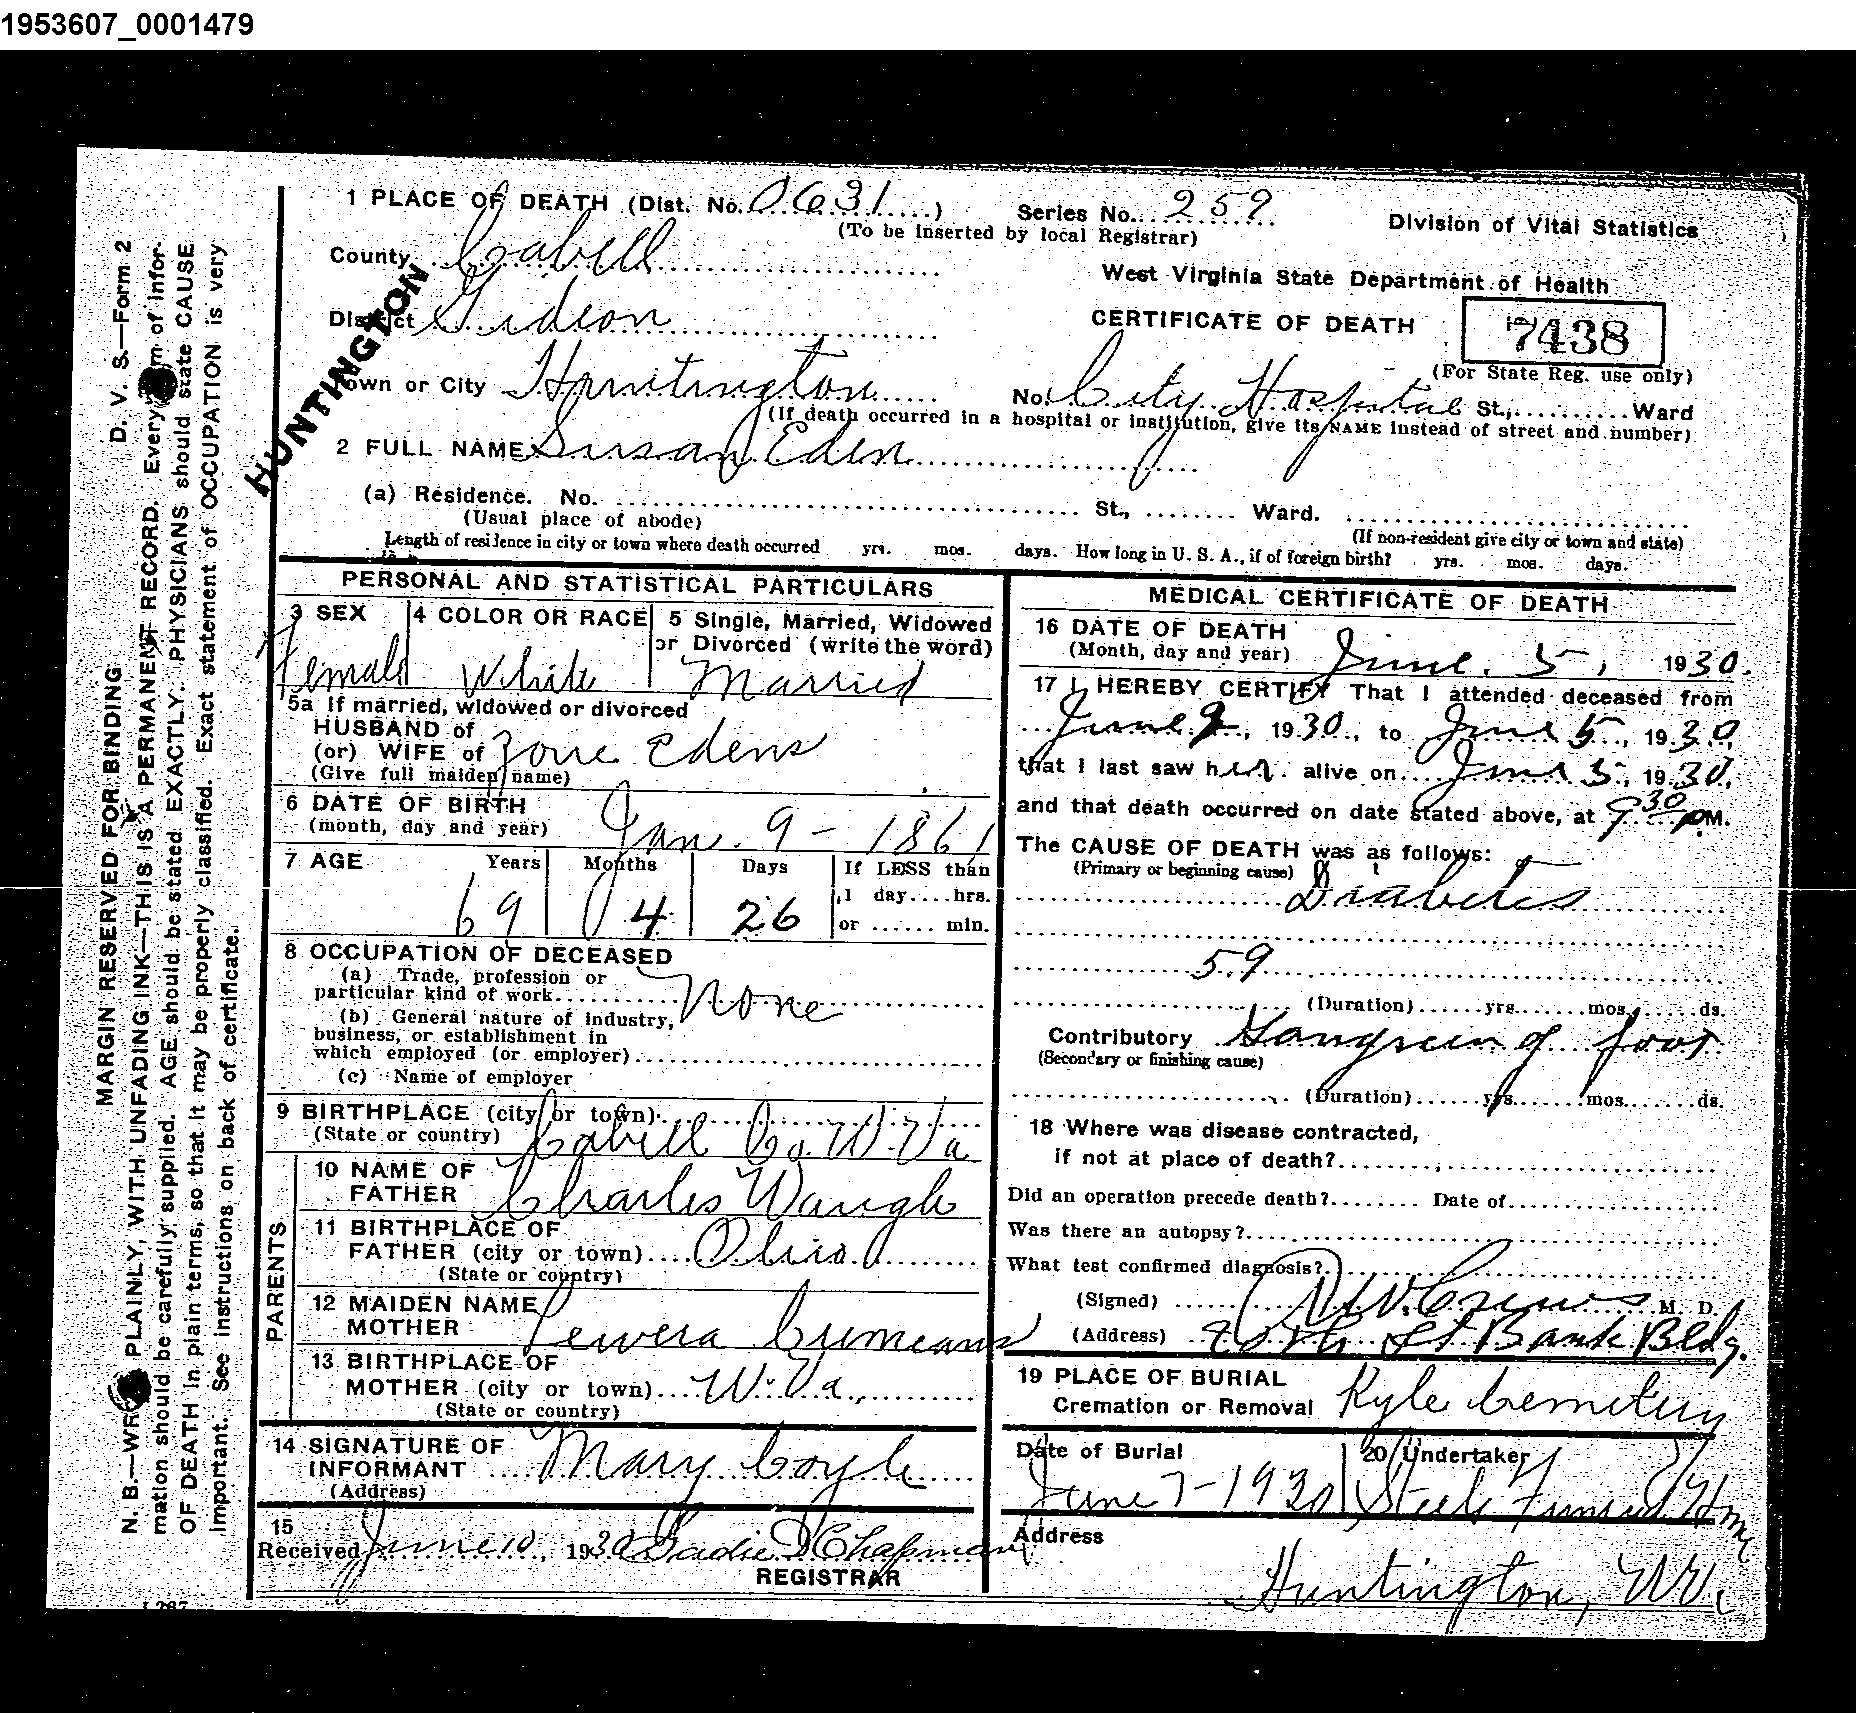 1953607_0001479
1 PLACE OF DEATH (Dist. No. 0631 ) Series No. 259 Division of Vital Statistics
(To be inserted by local Registrar)
County Cabell
West Virginia State Department of Health
HUNTINGTON
District Gideon
CERTIFICATE OF DEATH 7438
(For State Reg. use only)
Town or City Huntington No. City Hospital St., Ward
(If death occurred in a hospital or institution, give its NAME instead of street and number)
2 FULL NAME Susan Eden
(a) Residence. No. St., Ward.
(Usual place of abode) (If non-resident give city or town and state)
Length of residence in city or town where death occurred yrs. mos. days. How long in U. S. A., if of foreign birth? yrs. mos. days.
PERSONAL AND STATISTICAL PARTICULARS
3 SEX 4 COLOR OR RACE 5 Single, Married, Widowed
or Divorced (write the word)
Female White Married
5a If married, widowed or divorced
HUSBAND of
(or) WIFE of Edens
(Give full maiden name)
6 DATE OF BIRTH
(month, day and year) Jan. 9 - 1861
7 AGE Years Months Days If LESS than
1 day....hrs.
69 4 26 or ...... min.
8 OCCUPATION OF DECEASED
(a) Trade, profession or
particular kind of work None
(b) General nature of industry,
business, or establishment in
which employed (or employer)
(c) Name of employer
9 BIRTHPLACE (city or town)
(State or country) Cabell Co. W. Va
PARENTS
10 NAME OF
FATHER Charles Waugh
11 BIRTHPLACE OF
FATHER (city or town) Ohio
(State or country)
12 MAIDEN NAME
MOTHER Lewera Crumeans
13 BIRTHPLACE OF
MOTHER (city or town) W. Va.
(State or country)
14 SIGNATURE OF
INFORMANT Mary Coyle
(Address)
15
Received June 10, 1930 Sadie D Chapman
REGISTRAR
MEDICAL CERTIFICATE OF DEATH
16 DATE OF DEATH
(Month, day and year) June 5, 1930.
17 I HEREBY CERTIFY That I attended deceased from
June 2, 1930, to June 5, 1930,
that I last saw her alive on June 5, 1930,
and that death occurred on date stated above, at 9 30 PM.
The CAUSE OF DEATH was as follows:
(Primary or beginning cause)
Diabetes
59
(Duration) yrs. mos. ds.
Contributory Gangreen of foot
(Secondary or finishing cause)
(Duration) yrs. mos. ds.
18 Where was disease contracted,
if not at place of death?
Did an operation precede death? Date of
Was there an autopsy?
What test confirmed diagnosis?
(Signed) Crews M. D.
(Address) St Bank Bldg.
19 PLACE OF BURIAL
Cremation or Removal Kyle Cemetery
Date of Burial 20 Undertaker
June 7-1930 Steele Funeral Home
Address
Huntington, W.V.
D. V. S.—Form 2
MARGIN RESERVED FOR BINDING
N. B.—WRITE PLAINLY, WITH UNFADING INK—THIS IS A PERMANENT RECORD. Every item of infor-
mation should be carefully supplied. AGE should be stated EXACTLY. PHYSICIANS should state CAUSE
OF DEATH in plain terms, so that it may be properly classified. Exact statement of OCCUPATION is very
important. See instructions on back of certificate.